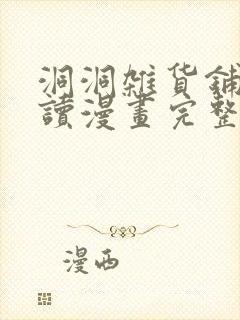 洞洞雜貨鋪
讀漫畫完整
漫西